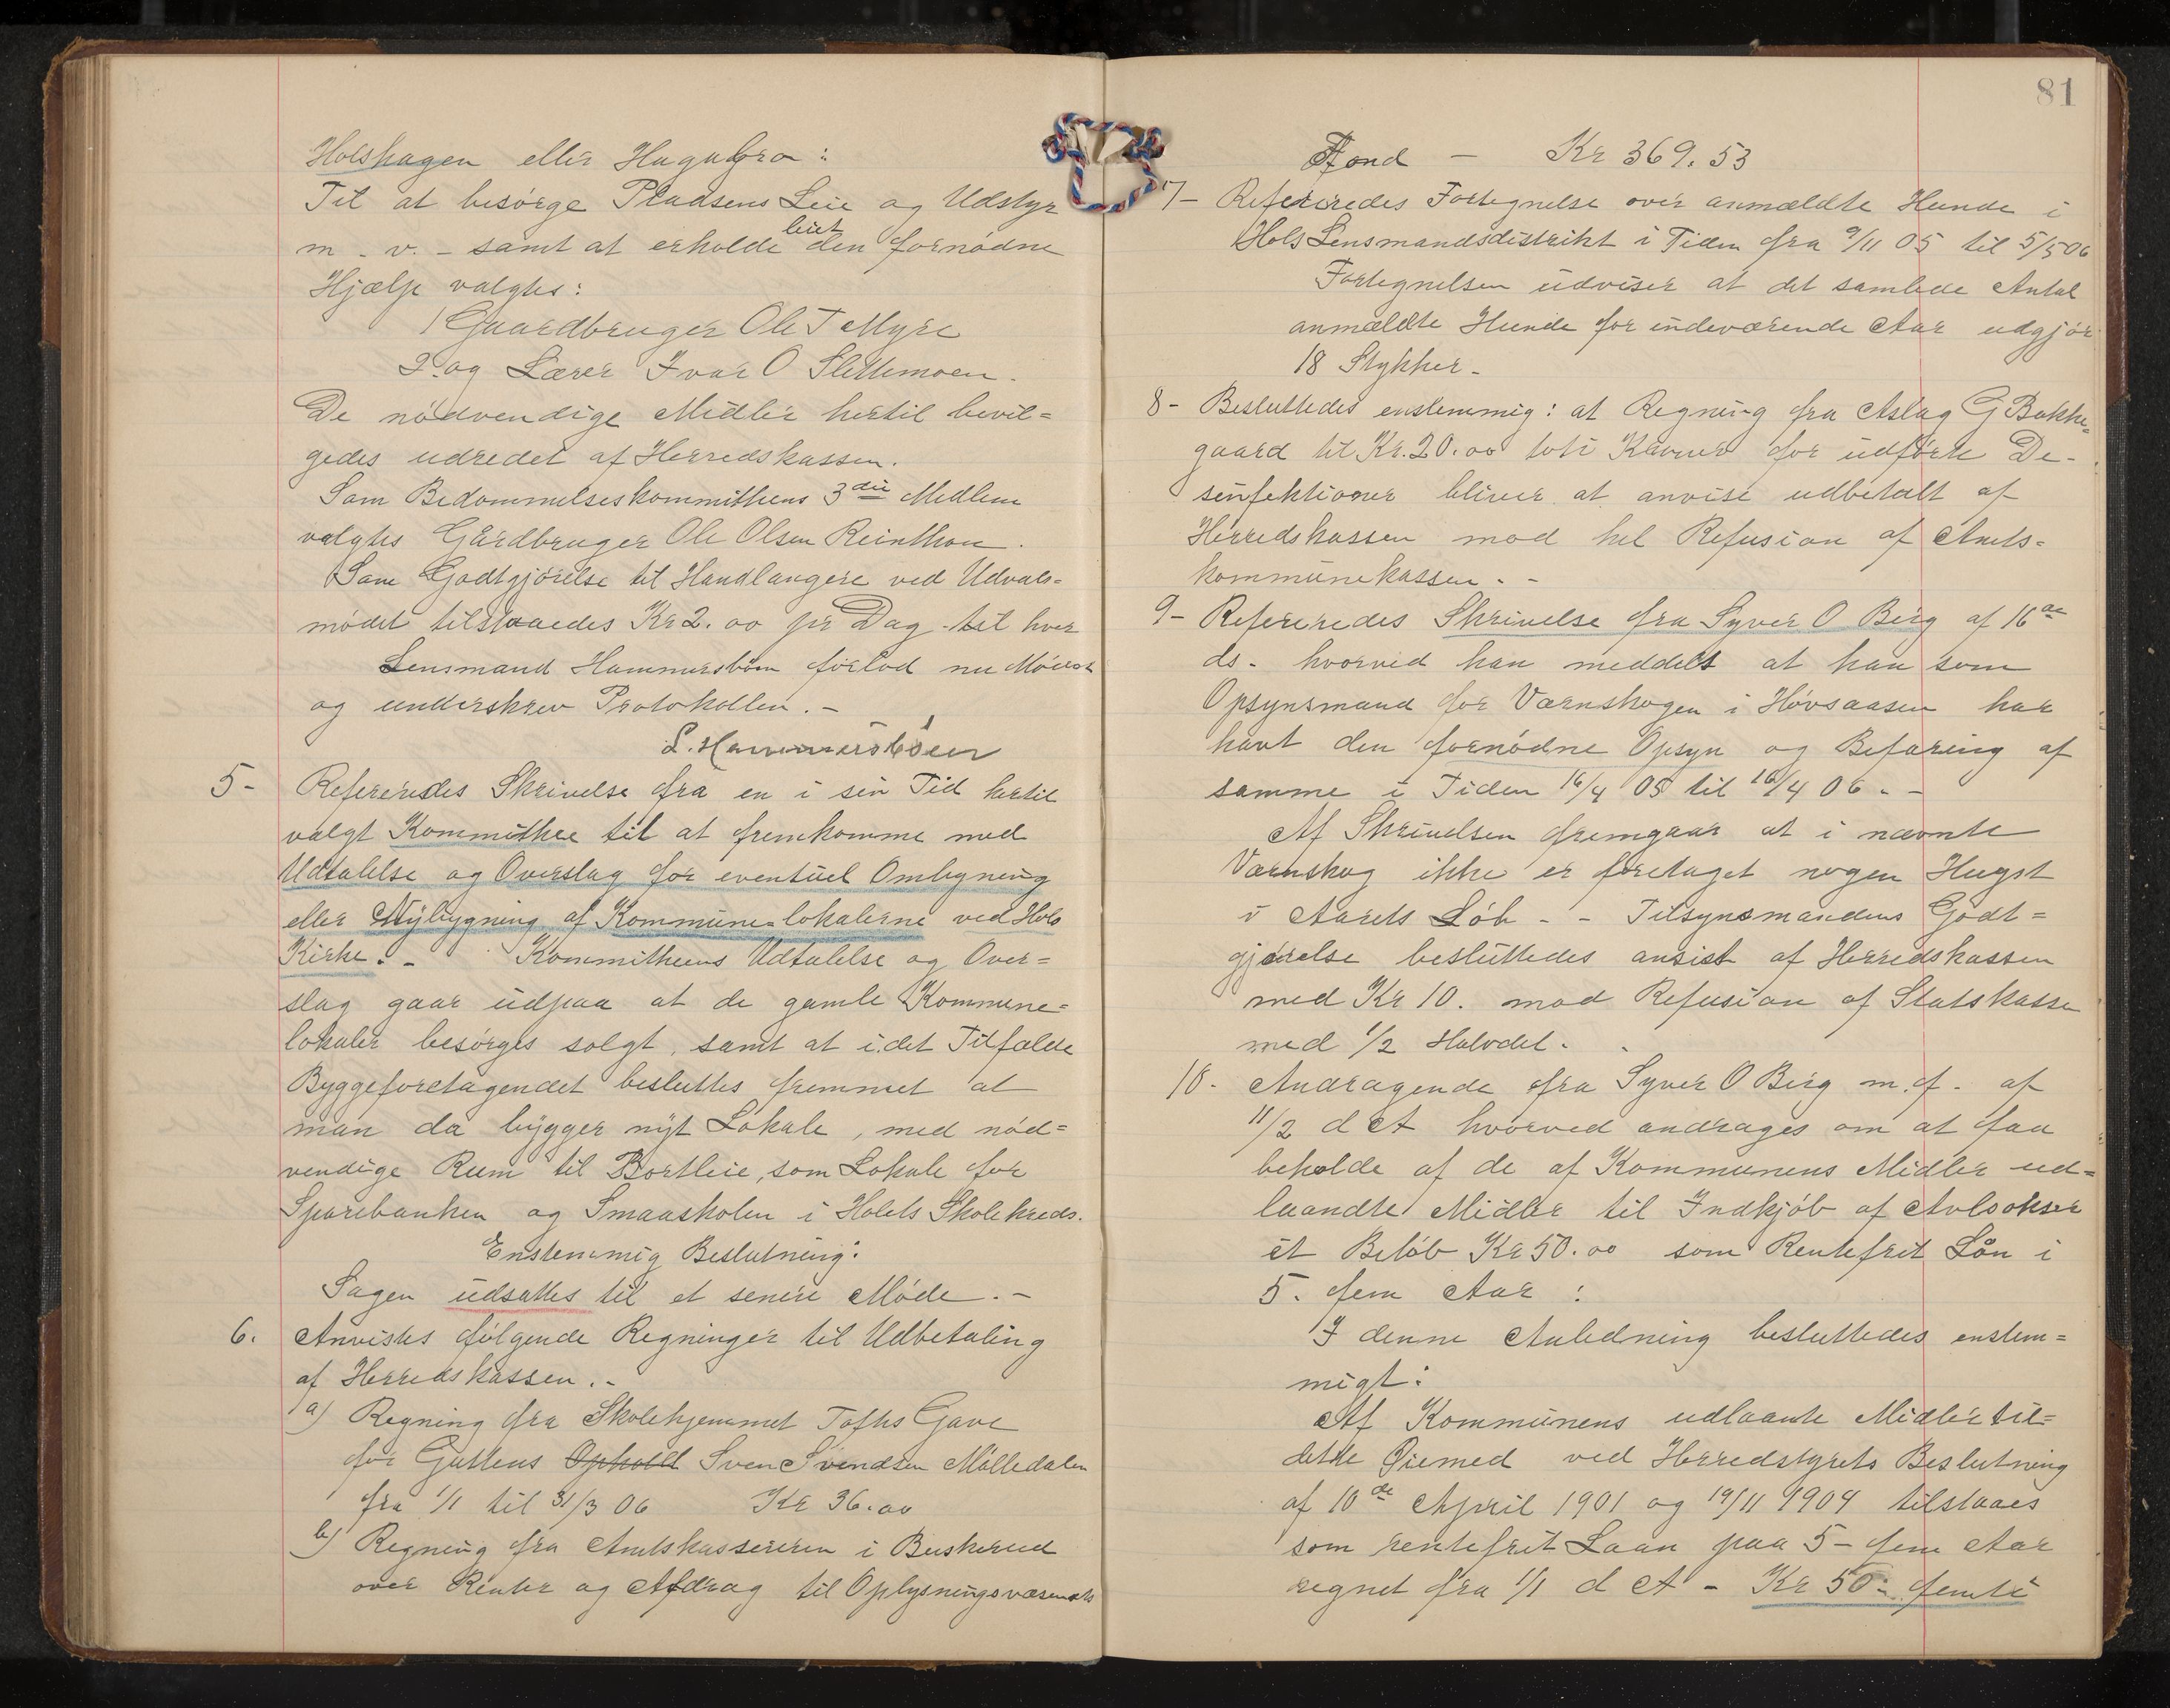 Holshagen eller Hagabra:
Til at besørge Pladsens Leie og Udstyr
m. v. - samt at erholde leiet den fornødne
Hjælp valgtes:
1 Gaardbruger Ole T Myre
2. og Lærer Ivar O Slettemoen.
De nødvendige Midler hertil bevil=
gedes udredet af Herredskassen.
Som Bedømmelseskommitheens 3die Medlem
valgtes Gårdbruger Ole Olsen Reinthon.
Som Godtgjørelse til Handlangere ved Udvals=
mødet tilstaaedes Kr 2.00 pr Dag til hver
Lensmand Hammersbøen forlod nu Mødet
og underskrev Protokollen. -
L. Hammersbøen
5- Refereredes Skrivelse fra en i sin Tid hertil
valgt Kommithee til at fremkomme med
Udtalelse og Overslag for eventuel Ombygning
eller Nybygning af Kommunelokalerne ved Hols
Kirke. - Kommitheens Udtalelse og Over=
slag gaar udpaa at de gamle Kommune=
lokaler besørges solgt, samt at i det Tilfælde
Byggeforetagendet besluttes fremmet at
man da bygger nyt Lokale, med nød=
vendige Rum til Bortleie, som Lokale for
Sparebanken og Smaaskolen i Holets Skolekreds.
Enstemmig Beslutning:
Sagen udsattes til et senere Møde. -
6. Anvistes følgende Regninger til Udbetaling
af Herredskassen. -
a) Regning fra Skolehjemmet Tofths Gave
for Guttens Ophold Sven Svendsen Mølledalen
fra 1/1 til 31/3 06 Kr 36.00
b) Regning fra Amtskassereren i Buskerud
over Renter og Afdrag til Oplysningsvæsenets
81
Fond - Kr 369.53
7- Refereredes Fortegnelse over anmældte Hunde i
Hols Lensmandsdistrikt i Tiden fra 9/11 05 til 5/5 06
Fortegnelsen udviser at det samlede Antal
anmældte Hunde for indeværende Aar udgjør
18 Stykker -
8- Besluttedes enstemmig: at Regning fra Aslag G Bakke=
gaard til Kr. 20.00 toti Kroner for udførte De-
sinfektioner bliver at anvise udbetalt af
Herredskassen mod hel Refusion af Amts=
kommunekassen. -
9- Refereredes Skrivelse fra Syver O Berg af 16de
ds. hvorved han meddelt at han som
Opsynsmand for Værnskogen i Høvsaasen har
havt den fornødne Opsyn og Befaring af
samme i Tiden 16/4 05 til 16/4 06. -
Af Skrivelsen fremgaar at i nævnte
Værnskog ikke er foretaget nogen Hugst
i Aarets Løb - - Tilsynsmandens Godt=
gjørelse besluttedes anvist af Herredskassen
med Kr 10. mod Refusion af Statskassen
med 1/2 Halvdel.
10. Andragende fra Syver O Berg m. fl. af
11/2 d A hvorved andrages om at faa
beholde af de af Kommunens Midler ud=
laandte Midler til Indkjøb af Avlsokser
et Beløb Kr 50.00 som Rentefrit Lån i
5. fem Aar:
I denne Anledning besluttedes enstem=
migt:
Af Kommunens udlaante Midler til=
dette Øiemed ved Herredstyrets Beslutning
af 10de April 1901 og 19/11 1904 tilstaaes
som rentefrit Laan paa 5 - fem Aar
regnet fra 1/1 d A - Kr 50 - femti